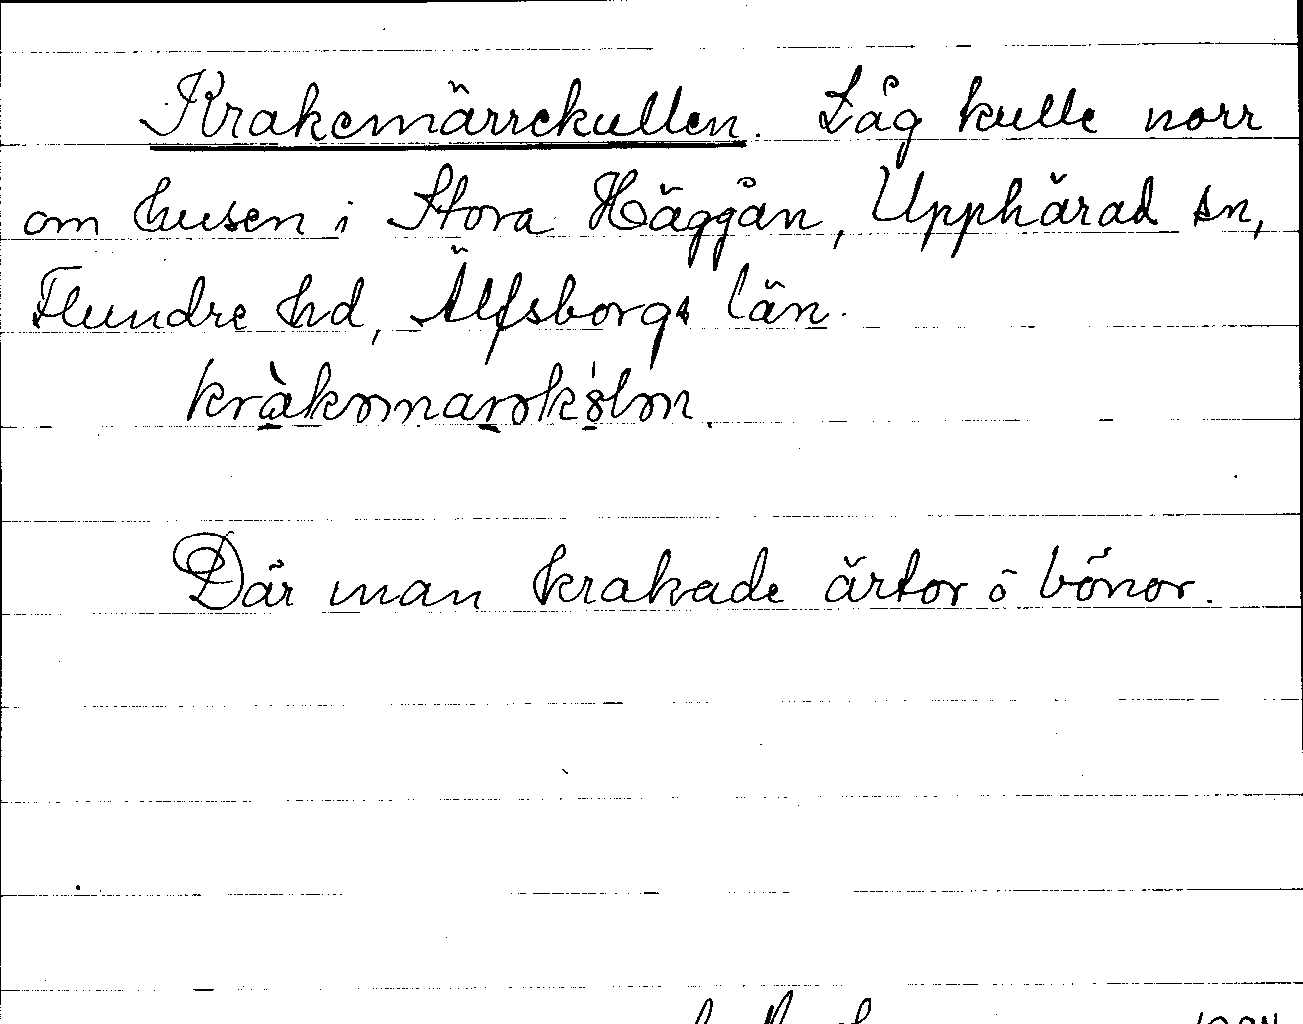 Krakemärrekullen. Låg kulle norr
om husen i Stora Häggån, Upphärad sn,
Flundre hd, Älfsborgs län.
Där man krakade ärtor ö bönor.